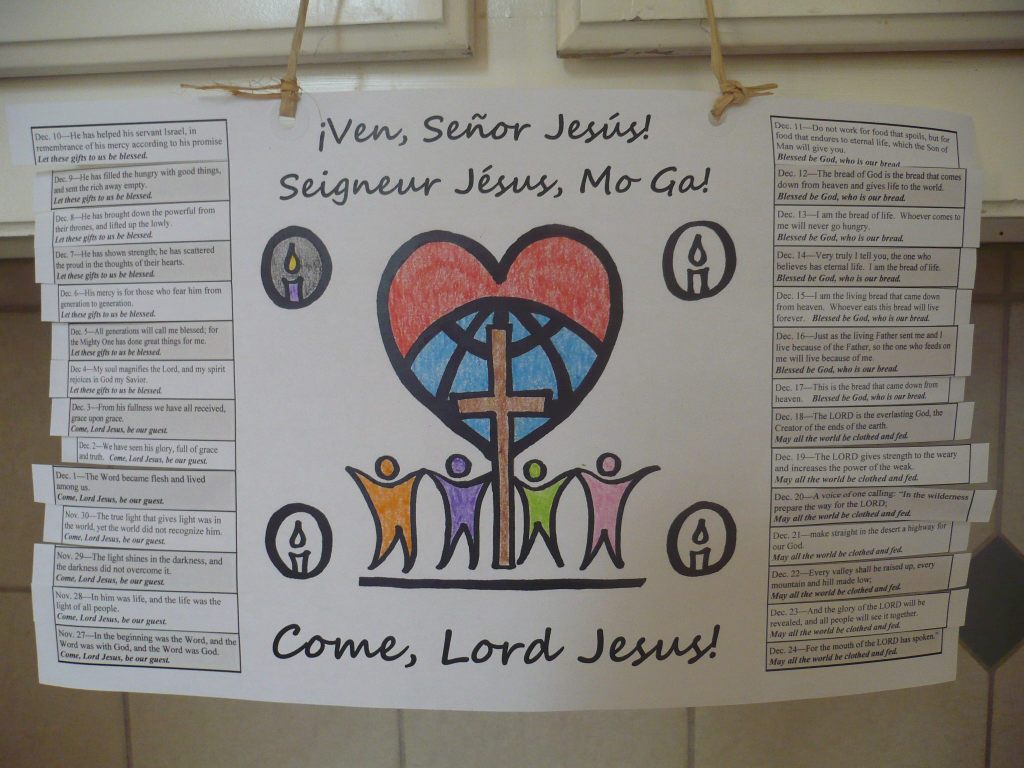 ¡Ven, Señor Jesús!
Seigneur Jésus, Mo Ga!
Dec. 10—He has helped his servant Israel, in
remembrance of his mercy according to his promise
Let these gifts to us be blessed.
Dec. 9—He has filled the hungry with good things,
and sent the rich away empty.
Let these gifts to us be blessed.
Dec. 8—He has brought down the powerful from
their thrones, and lifted up the lowly.
Let these gifts to us be blessed.
Dec. 7—He has shown strength; he has scattered
the proud in the thoughts of their hearts.
Let these gifts to us be blessed.
Dec. 6—His mercy is for those who fear him from
generation to generation.
Let these gifts to us be blessed.
Dec. 5—All generations will call me blessed; for
the Mighty One has done great things for me.
Let these gifts to us be blessed.
Dec 4—My soul magnifies the Lord, and my spirit
rejoices in God my Savior.
Let these gifts to us be blessed.
Dec. 3—From his fullness we have all received,
grace upon grace.
Come, Lord Jesus, be our guest.
Dec. 2—We have seen his glory, full of grace
and truth. Come, Lord Jesus, be our guest.
Dec. 1—The Word became flesh and lived
among us.
Come, Lord Jesus, be our guest.
Nov. 30—The true light that gives light was in
the world, yet the world did not recognize him.
Come, Lord Jesus, be our guest.
Nov. 29—The light shines in the darkness, and
the darkness did not overcome it.
Come, Lord Jesus, be our guest.
Nov. 28—In him was life, and the life was the
light of all people.
Come, Lord Jesus, be our guest.
Nov. 27—In the beginning was the Word, and the
Word was with God, and the Word was God.
Come, Lord Jesus, be our guest.
Dec. 11—Do not work for food that spoils, but for
food that endures to eternal life, which the Son of
Man will give you.
Blessed be God, who is our bread.
Dec. 12—The bread of God is the bread that comes
down from heaven and gives life to the world.
Blessed be God, who is our bread.
Dec. 13—I am the bread of life. Whoever comes to
me will never go hungry.
Blessed be God, who is our bread.
Dec. 14—Very truly I tell you, the one who
believes has eternal life. I am the bread of life.
Blessed be God, who is our bread.
Dec. 15—I am the living bread that came down
from heaven. Whoever eats this bread will live
forever. Blessed be God, who is our bread.
Dec. 16—Just as the living Father sent me and I
live because of the Father, so the one who feeds on
me will live because of me.
Blessed be God, who is our bread.
Dec. 17—This is the bread that came down from
heaven. Blessed be God, who is our bread.
Dec. 18—The LORD is the everlasting God, the
Creator of the ends of the earth.
May all the world be clothed and fed.
Dec. 19—The LORD gives strength to the weary
and increases the power of the weak.
May all the world be clothed and fed.
Dec. 20—A voice of one calling: "In the wilderness
prepare the way for the LORD;
May all the world be clothed and fed.
Dec. 21—make straight in the desert a highway for
our God.
May all the world be clothed and fed.
Dec. 22—Every valley shall be raised up, every
mountain and hill made low;
May all the world be clothed and fed.
Dec. 23—And the glory of the LORD will be
revealed, and all people will see it together.
May all the world be clothed and fed.
Dec. 24—For the mouth of the LORD has spoken."
May all the world be clothed and fed.
Come, Lord Jesus!